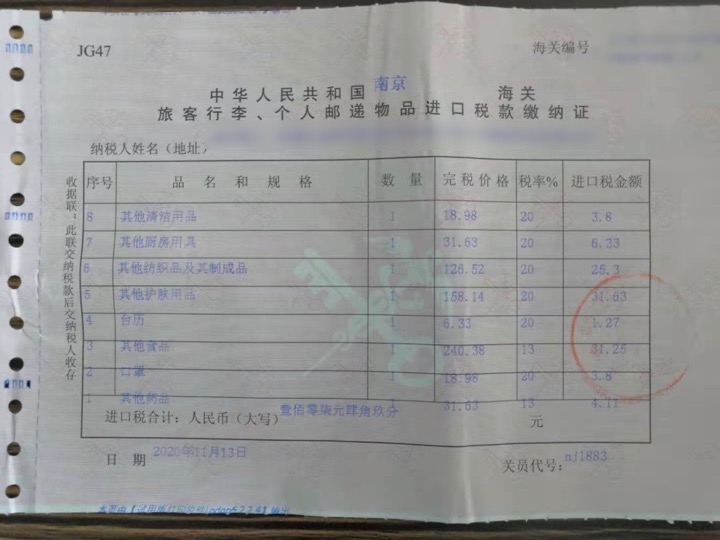 JG47
海关编号
中华人民共和国南京海关
旅客行李、个人邮递物品进口税款缴纳证
纳税人姓名（地址）
收据联：此联交纳税款后交纳税人收存
序号 品名和规格 数量 完税价格 税率% 进口税金额
8 其他清洁用品 1 18.98 20 3.8
7 其他厨房用具 1 31.63 20 6.33
6 其他纺织品及其制成品 1 126.52 20 25.3
5 其他护肤用品 1 158.14 20 31.63
4 台历 1 6.33 20 1.27
3 其他食品 1 240.38 13 31.25
2 口罩 1 18.98 20 3.8
1 其他药品 1 31.63 13 4.11
进口税合计：人民币（大写）壹佰零柒元肆角玖分 元
日期 2020年11月13日
关员代号：nj1883